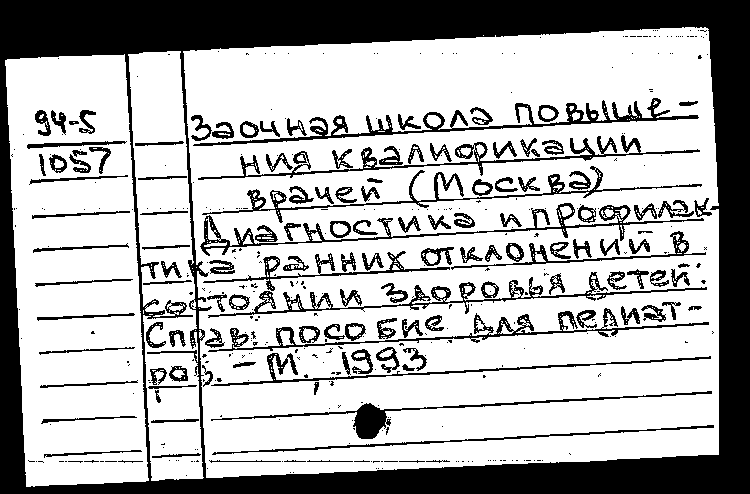 94-5
1057
Заочная школа повыше-
ния квалификации
врачей (Москва)
Диагностика и профилак-
тика ранних отклонений в
состоянии здоровья детей:
Справ. пособие для педиат-
ров. - М., 1993